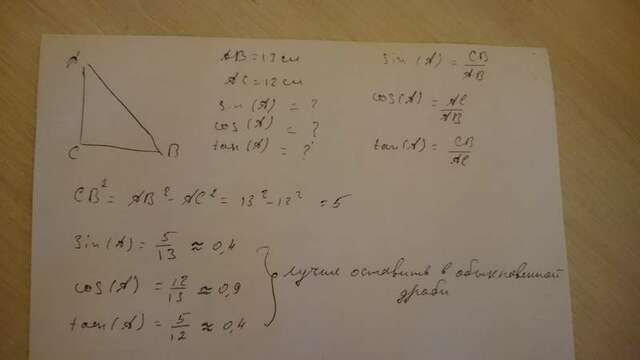 A
C
B
AB = 13 см
AC = 12 см
sin(A) = ?
cos(A) = ?
tan(A) = ?
sin(A) = CB/AB
cos(A) = AC/AB
tan(A) = CB/AC
CB² = AB² - AC² = 13² - 12² = 5
sin(A) = 5/13 ≈ 0,4
cos(A) = 12/13 ≈ 0,9
tan(A) = 5/12 ≈ 0,4
лучше оставить в обыкновенной
дроби